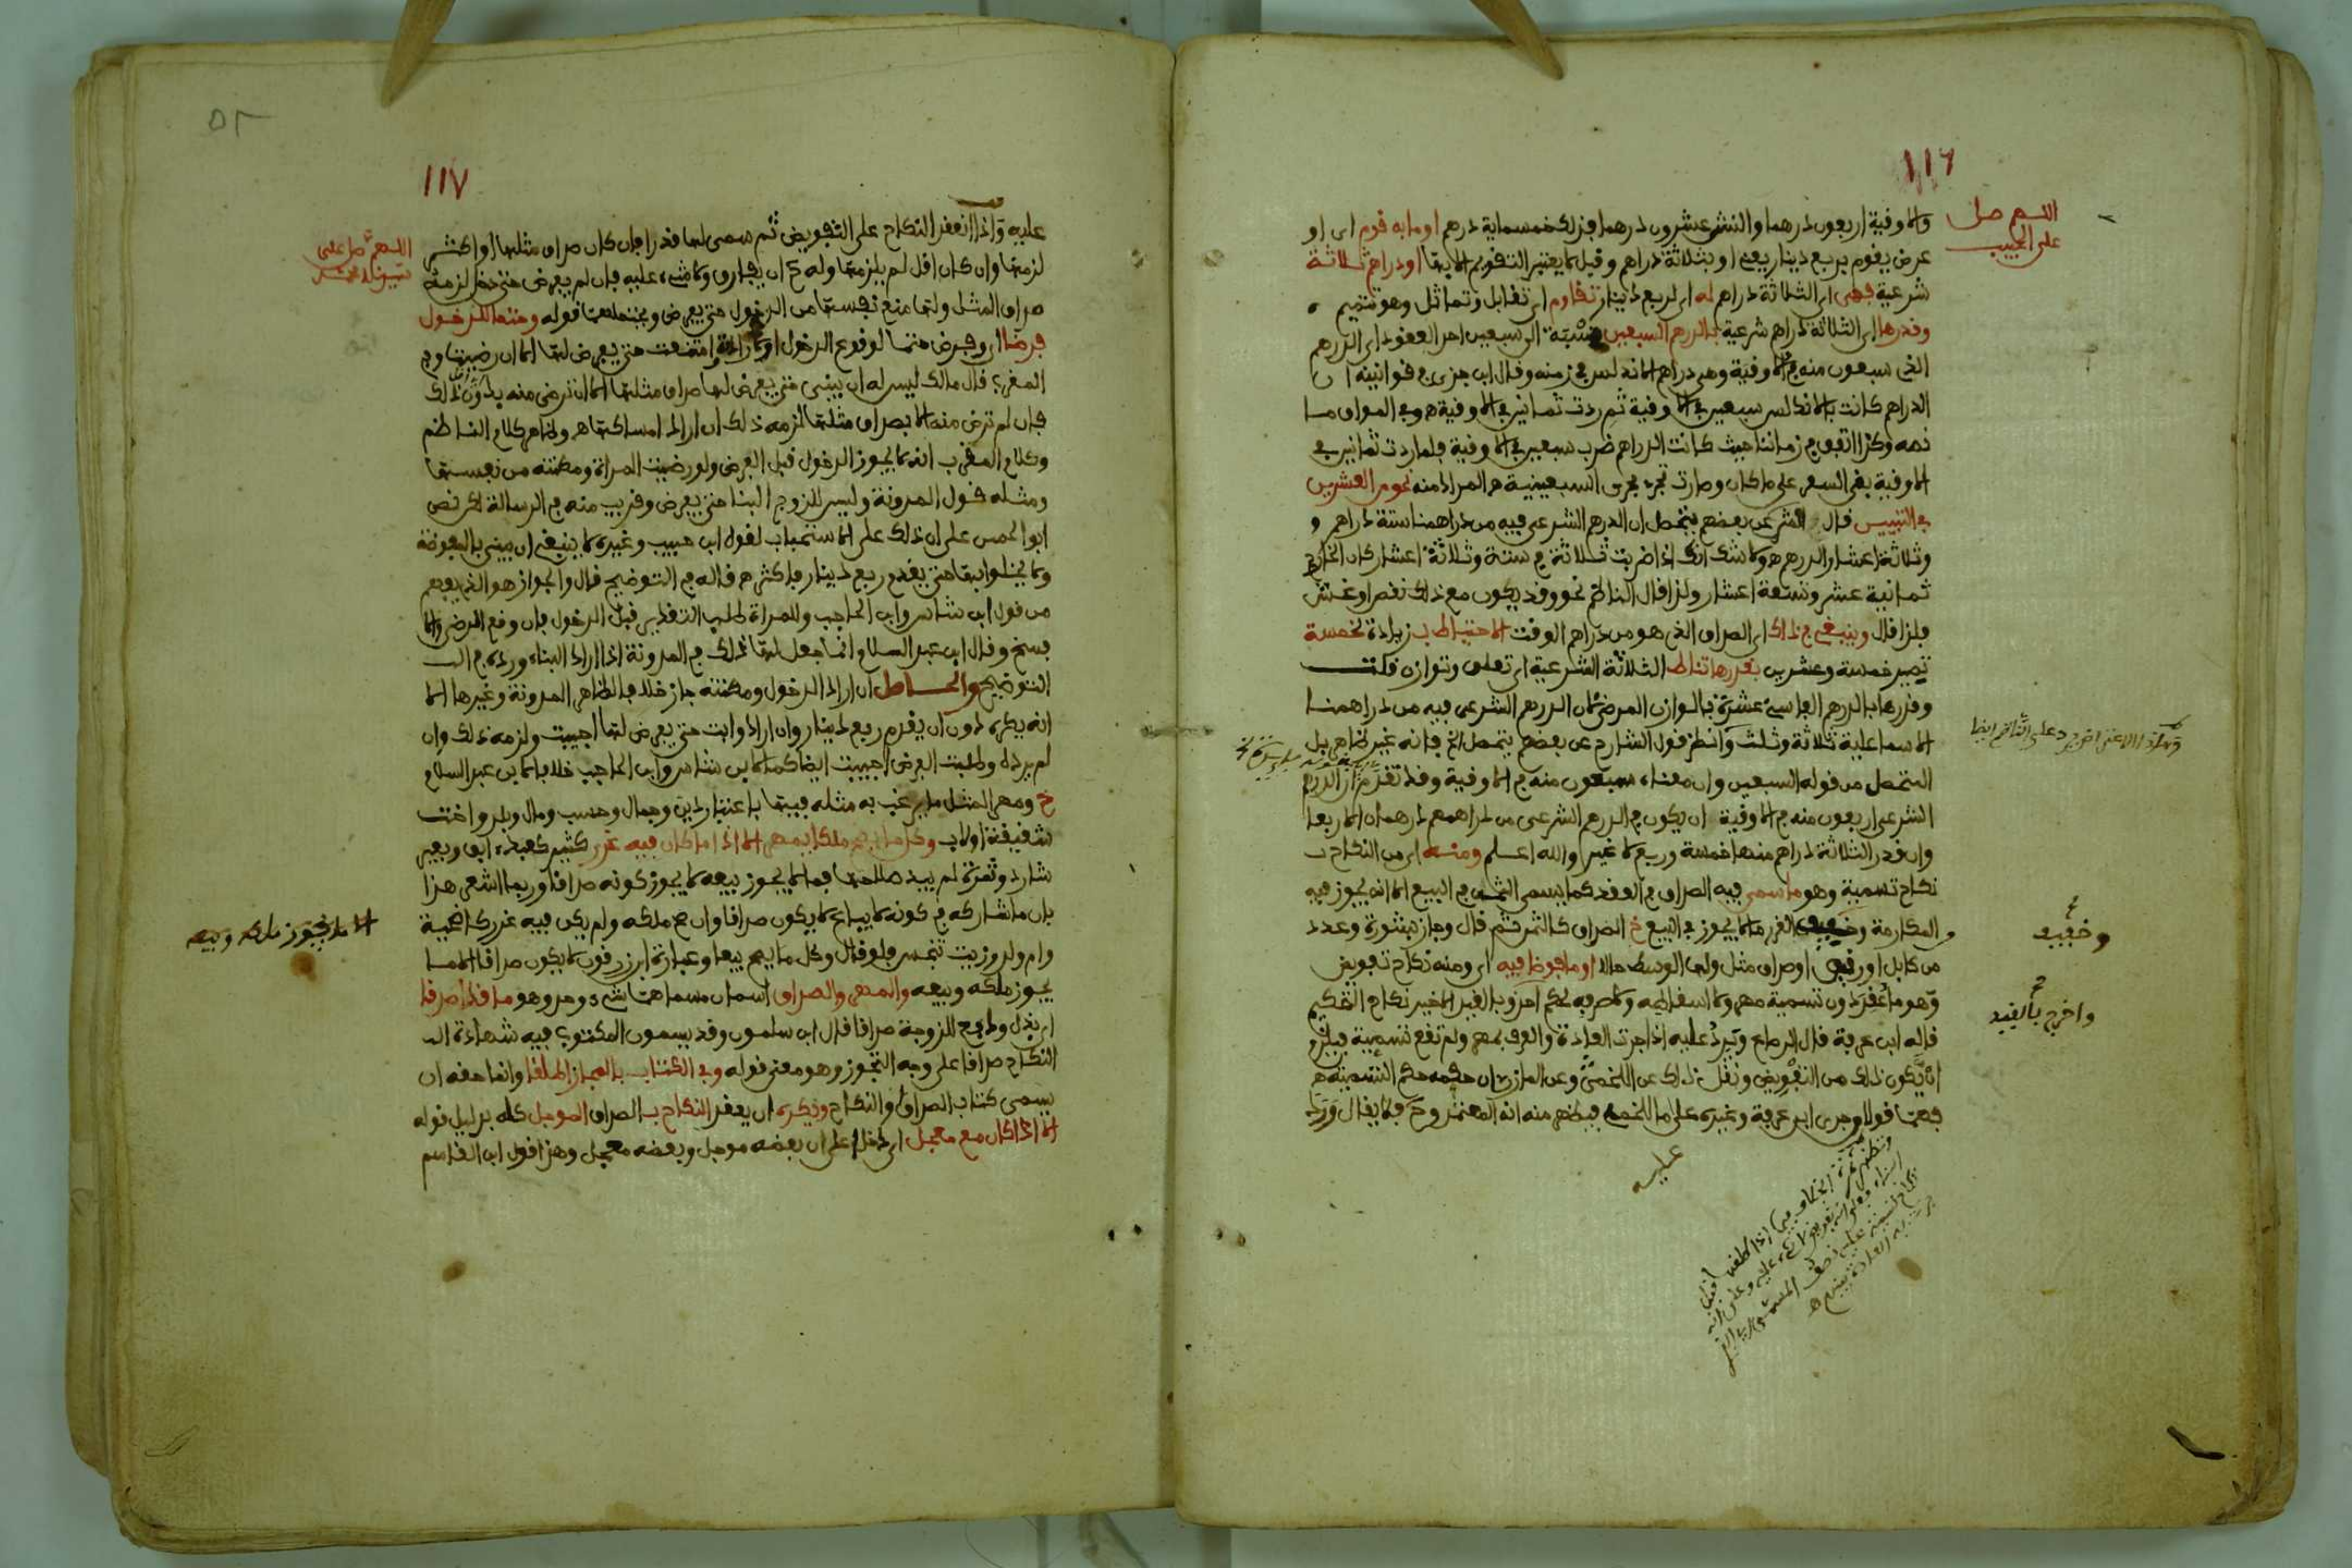 ١١٦
اللهم صل
على الحبيب
والاوقية اربعون درهما والنش عشرون درهما فذلك خمسماية درهم او ما به قوم اى او
عرض يقوم بربع دينار يعنى او بثلاثة دراهم وقيل لا يعتبر التقويم الا بها او دراهم ثلاثة
شرعية فهى اى الثلاثة دراهم له اى لربع دينار تقاوم اى تقابل وتماثل وهو تتميم
وقدرها اى الثلاثة دراهم شرعية بالدرهم السبعين نسبة الى سبعين احد العقود اى الدرهم
الذى سبعون منه فى الاوقية وهى دراهم الاندلس فى زمنه وقال ابن جزى فى قوانينه ان
الدراهم كانت بالاندلس سبعين فى الاوقية ثم ردت ثمانين فى الاوقية وفى المواق ما
نصه وكذا اتفق فى زماننا حيث كانت الدراهم ضرب سبعين فى الاوقية فلما ردت ثمانين فى
الاوقية بقى السعر على ما كان وصارت تجرى مجرى السبعينية المراد منه نحو من العشرين
فى التبييس قال الشارح عن بعضهم يتحصل ان الدرهم الشرعى فيه من دراهمنا ستة دراهم و
وثلاثة اعشار الدرهم ولا شك انك اذا ضربت ثلاثة فى ستة وثلاثة اعشار كان الخارج
ثمانية عشر وتسعة اعشار ولذا قال الناظم نحو وقد يكون مع ذلك نقص او غش
فلذا قال وينبغى فى ذاك اى الصداق الذى هو من دراهم الوقت الاحتياط بزيادة لخمسة
تصير خمسة وعشرين بقدرها تناط الثلاثة الشرعية اى تعلق وتوازن قلت
وقدرها بالدرهم الفاسى عشرة بالوازن المرضى لان الدرهم الشرعى فيه من دراهمنا
الاسماعلية ثلاثة وثلث وانظر قول الشارح عن بعضهم يتحصل الخ فانه غير ظاهر بل
المتحصل من قوله السبعين وان معناه سبعون منه فى الاوقية وقد تقدم ان الدرهم
الشرعى اربعون منه فى الاوقية ان يكون فى الدرهم الشرعى من دراهمهم درهمان الا ربعا
وان قدر الثلاثة دراهم منها خمسة وربع لا غير والله اعلم ومنه اى من النكاح
نكاح تسمية وهو ما سمى فيه الصداق فى العقد كما يسمى الثمن فى البيع الا انه يجوز فيه
المكارمة الغرر ما لا يجوز فى البيع خ الصداق كالثمن ثم قال وجاز بشورة وعدد
من كابل او رقيق او صداق مثل ولها الوسط حالا او ما فوضا فيه اى ومنه نكاح تفويض
وهو ما عقد دون تسمية مهر ولا اسقاطه ولا صرفه لحكم احد وبالقيد الاخير نكاح التحكيم
قاله ابن عرفة قال الرصاع ويرد عليه اذا جرت العادة والعرف بمهر ولم تقع تسمية فيلزم
ان يكون ذلك من التفويض ونقل ذلك عن اللخمى وعن المازرى ان حكمه حكم التسمية
فهما قولا وجرى ابن عرفة وغيره على ما للخمى فيظهر منه انه المعتمد وح فلا يقال ورد
عليه
وخفيف
واخرج بالقيد
١١٧
٥٢
اللهم صل على
سيدنا محمد
عليه واذا انعقد النكاح على التفويض ثم سمى لها قدرا فان كان صداق مثلها او اكثر
لزمها وان كان اقل لم يلزمها وله ح ان يفارق ولا شىء عليه فان لم يفرض حتى دخل لزمه
صداق المثل ولها منع نفسها من الدخول حتى يفرض ويحتملهما قوله وحتما للدخول
فرضا اى وفرض حتما لوقوع الدخول او لارادته وامتنعت حتى يفرض لها الا ان رضيت وفى
المقرب قال مالك ليس له ان يبنى حتى يفرض لها صداق مثلها الا ان ترضى منه بدون ذلك
فان لم ترض منه الا بصداق مثلها لزمه ذلك ان اراد امساكها وظاهر كلام الناظم
وكلام المقرب انه لا يجوز الدخول قبل الفرض ولو رضيت المراة ومكنته من نفسها
ومثله قول المدونة وليس للزوج البنا حتى يفرض وقريب منه فى الرسالة لكن نص
ابو الحسن على ان ذلك على الاستحباب لقول ابن حبيب وغيره لا ينبغى ان يبنى بالمفوضة
ولا يخلوا بها حتى يقدم ربع دينار فاكثر قاله فى التوضيح قال والجواز هو الذى يفهم
من قول ابن شاس وابن الحاجب وللمراة طلب التقدير قبل الدخول فان وقع الرضى والا
فسخ وقال ابن عبد السلام انما جعل لها ذلك فى المدونة اذا اراد البناء ورده فى الـ
التوضيح والحاصل ان اراد الدخول ومكنته جاز خلافا لظاهر المدونة وغيرها الا
انه يكره دون ان يقدم ربع دينار وان اراد وابت حتى يفرض لها اجيبت ولزمه ذلك وان
لم يرده وطلبت الفرض اجيبت ايضا كما لابن شاس وابن الحاجب خلافا لابن عبد السلام
خ ومهر المثل ما يرغب به مثله فيها باعتبار دين وجمال وحسب ومال وبلد واخت
شقيقة او لاب وكل ما يصح ملكا يمهر الا اذا ما كان فيه غرر كثير كعبد ابق وبعير
شارد وثمرة لم يبد صلاحها فما لا يجوز بيعه لا يجوز كونه صداقا وربما اشعر هذا
بان ما شاركه فى كونه لا يباع لا يكون صداقا وان صح ملكه ولم يكن فيه غرر كاضحية
وام ولد وزيت تنجس فلو قال وكل ما يصح بيعا وعبارة ابن زرقون لا يكون صداقا الا ما
يجوز ملكه وبيعه والمهر والصداق اسمان مسماهما شىء وحد وهو ما قد اصدقا
اى بذل ودفع للزوجة صداقا قال ابن سلمون وقد يسمون المكتوب فيه شهادة الـ
النكاح صداقا على وجه التجوز وهو معنى قوله وفى الكتاب بالمجاز اطلقا وانما حقه ان
يسمى كتاب الصداق والنكاح ويكره ان يعقد النكاح بـالصداق الموجل كله بدليل قوله
الا اذا كان مع معجل اى دخلا على ان بعضه موجل وبعضه معجل وهذا قول ابن القاسم
الا ما يجوز ملكه وبيعه